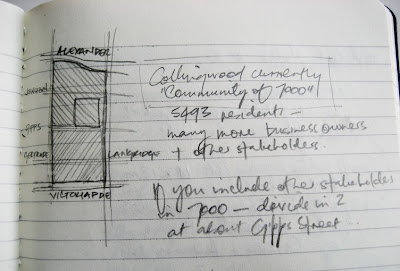 ALEXANDER
JOHNSTON
GIPPS
GERTRUDE
LANGRIDGE
VICTORIA PDE
Collingwood currently
"Community of 7000"
5493 residents –
many more business owners
+ other stakeholders.
If you include other stakeholders
in 7000 — divide in 2
at about Gipps Street...